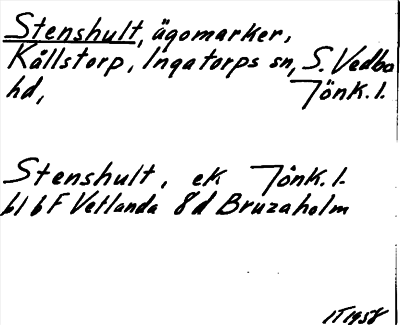 Stenshult, ägomarker,
Källstorp, Ingatorps sn, S. Vedbo
hd, Jönk. l.
Stenshult, ek Jönk. l.
bl 6F Vetlanda 8d Bruzaholm
IT 1958